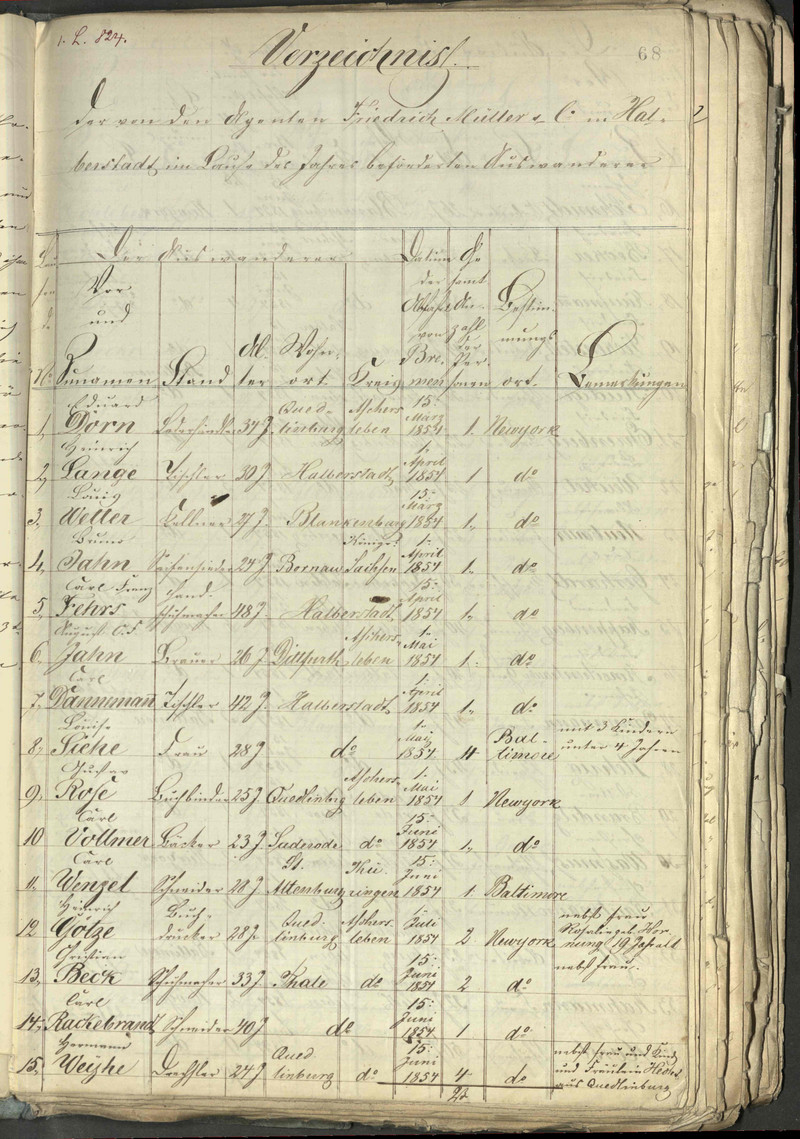 1. L. 824.
68
Verzeichniss.
der von den Agenten Friedrich Müller & C. in Hal-
berstadt im Laufe des Jahres beförderten Auswanderer
Der Auswanderer
No. Vor und Zunamen Stand Alter Wohnort Kreis Datum der Abfahrt von Bremen Gesamt Anzahl der Personen Bestimmungsort Bemerkungen
1, Eduard Dorn Lederhändler 34 J. Quedlinburg Aschersleben 15. März 1854 1. Newyork
2, Heinrich Lange Tischler 30 J. Halberstadt 1. April 1854 1 do
3, Louis Weller Kellner 27 J. Blankenburg 15. März 1854 1. do
4, Bruno Jahn Seifensieder 24 J. Bornau Königr. Sachsen 1. April 1854 1. do
5, Carl Franz Fehrs Schuhmacher 48 J. Halberstadt 15. April 1854 1. do
6, August Jahn Brauer 26 J. Dittfurth Aschersleben 1. Mai 1854 1. do
7, Carl Dannemann Tischler 42 J. Halberstadt 1. April 1854 1. do
8, Louise Siehe Frau 28 J do 1. Mai 1854 4 Baltimore mit 3 Kindern unter 4 Jahren
9, Gustav Rose Buchbinder 25 J Quedlinbg Aschersleben 1. Mai 1854 1 Newyork
10 Carl Vollmer Bäcker 23 J. Suderode do 15. Juni 1854 1. do
11, Carl Wenzel Schneider 28 J Altenburg Thüringen 15. Juni 1854 1 Baltimore
12 Heinrich Götze Buchdrucker 28 J. Quedlinburg Aschersleben Juli 1854 2 Newyork nebst Frau Hornung 19 Jahr alt
13, Christian Beck Schuhmacher 33 J. Thale do 15. Juni 1854 2 do nebst Frau.
14, Carl Rackebrandt Schneider 40 J do 15. Juni 1854 1 do
15, Hermann Weyhe Drechsler 27 J Quedlinburg do 15. Juni 1854 4 do nebst Frau und Kind und Fräulein aus Quedlinburg